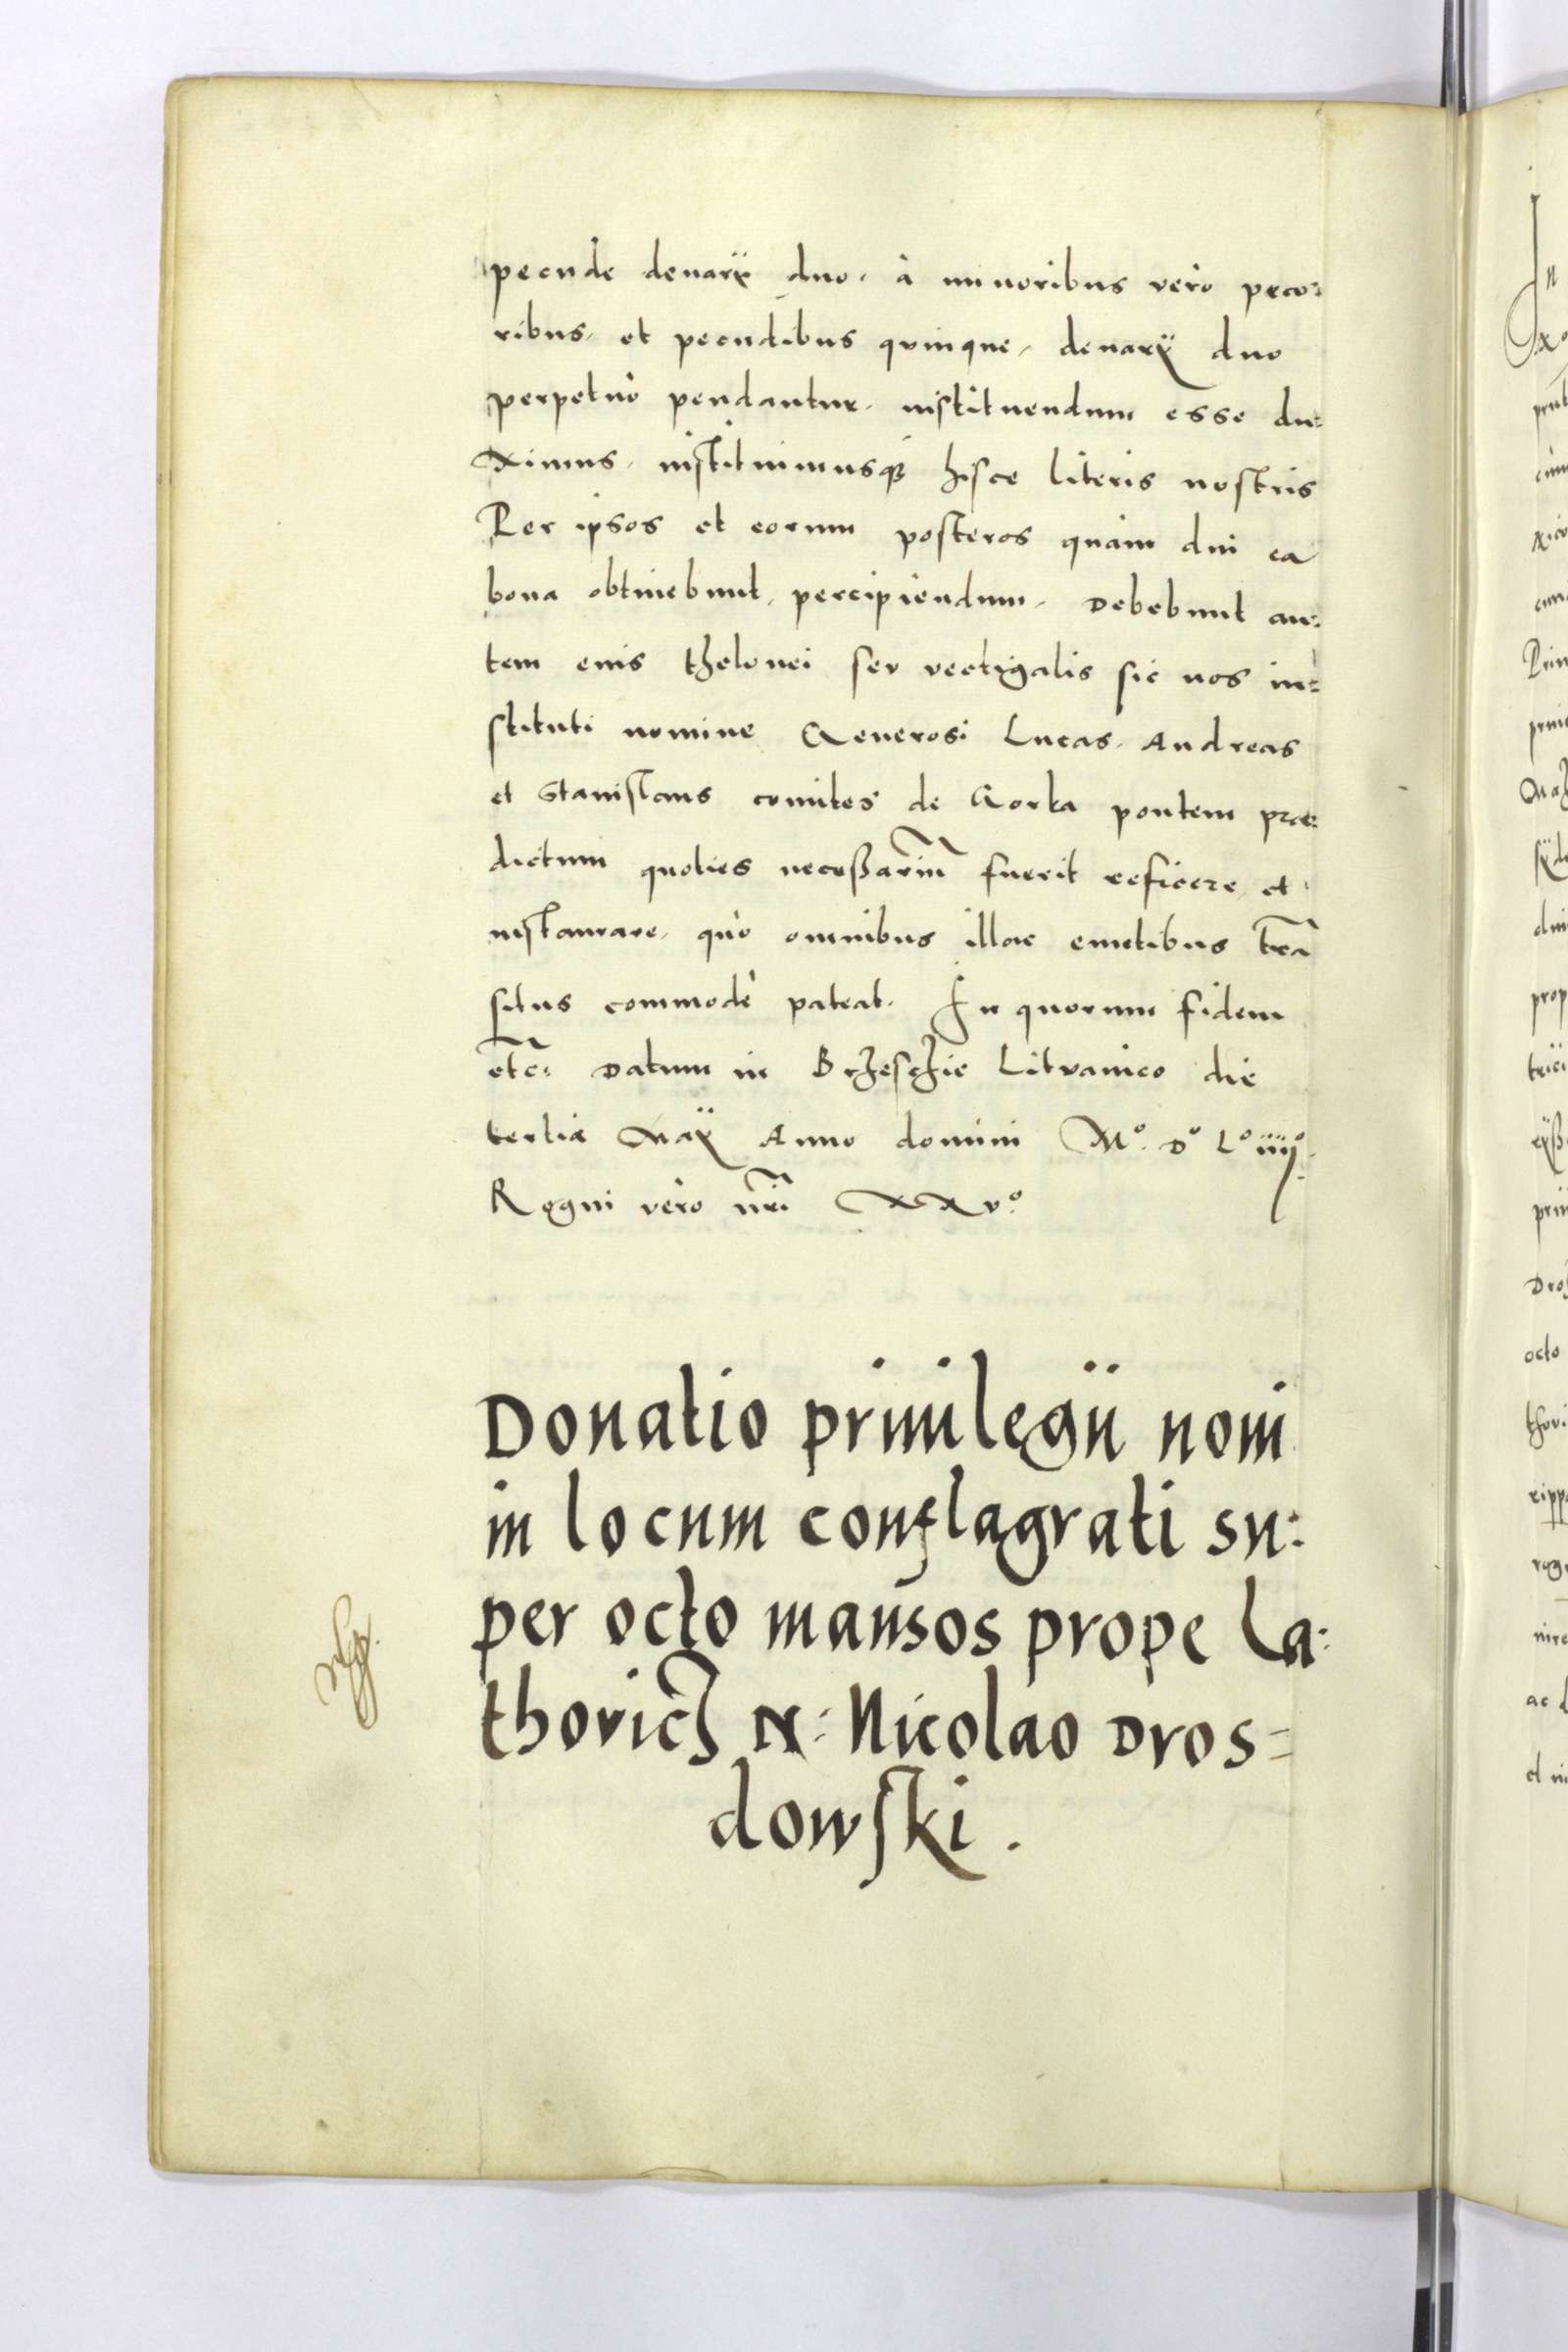 pecude denarij duo, à minoribus verò peco⸗
ribus, et pecudibus quinque, denarij duo
perpetuò pendantur, instituendum esse du⸗
ximus, instituimusq₃ hisce literis nostris
Per ipsos et eorum posteros quàm diu ea
bona obtinebunt, percipiendum, Debebunt au⸗
tem eius thelonei seu vectigalis sic nos in⸗
stituti nomine Generosi Lucas, Andreas
et Stanislaus comites de Gorka pontem præ⸗
dictum quoties necessariũ fuerit reficere, et
instaurare, quò omnibus illac euntibus trã
situs commodè pateat. In quorum fidem
etc̃. Datum in Brzesczie Lituanico die
tertia Maij Anno domini Mº. Dº Lº iiiijº.
Regni vero nr̃i XXvº.
Donatio priuilegij noui
in locum conflagrati su:
per octo mansos prope La:
thovicz N: Nicolao Dros=
dowski.
In